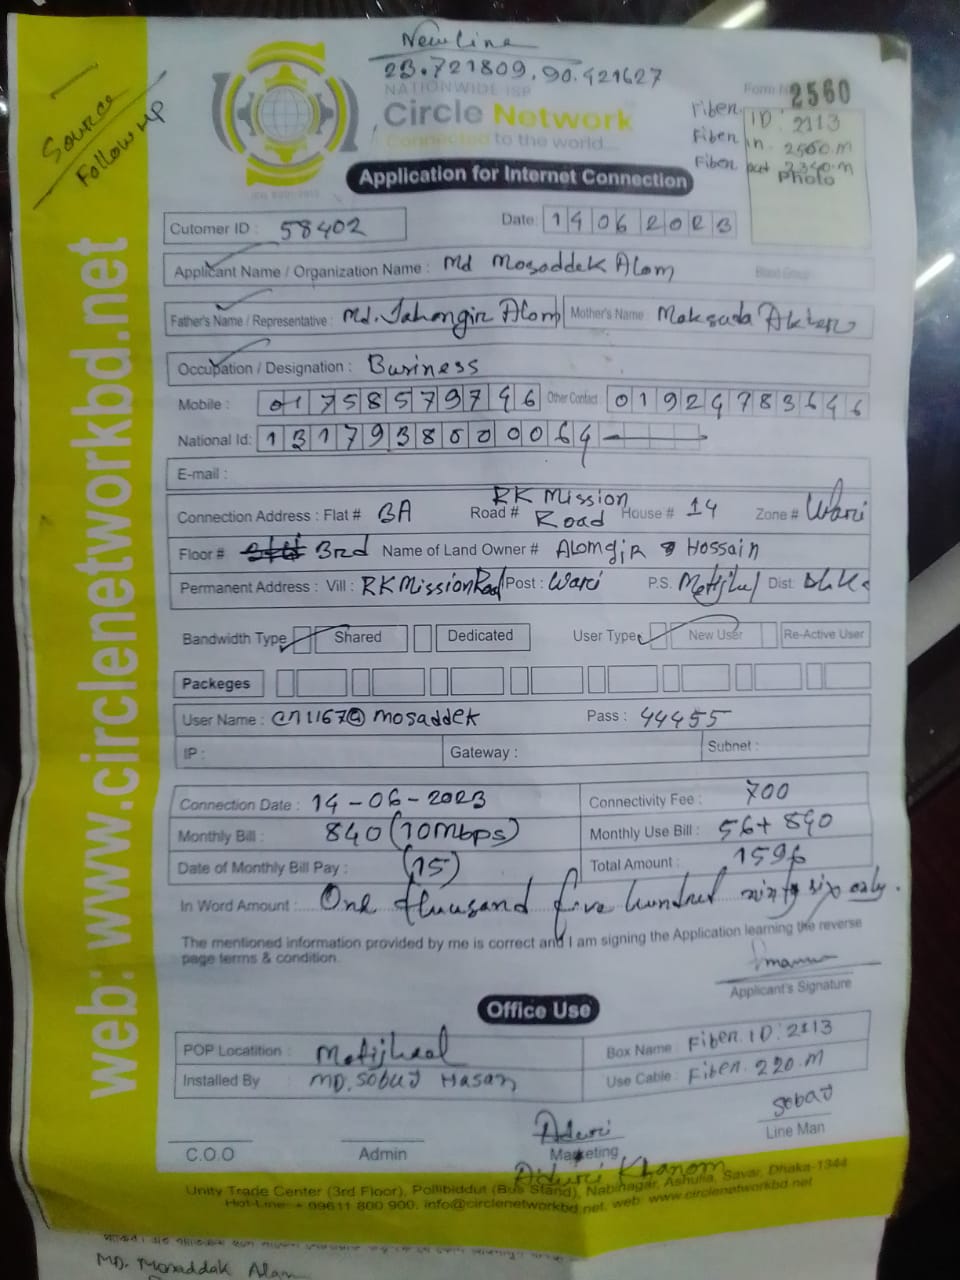 New Line
23.721809, 90.421627
NATIONWIDE ISP
Circle Network
Connected to the world....
Source
Follow up
Form 2560
Fiber ID: 2113
Fiber in. 2560.m
Fiber out 2340.m
Photo
Application for Internet Connection
Cutomer ID : 58402
Date: 14062023
Applicant Name / Organization Name : Md Mosaddek Alom
Blood Group
Father's Name / Representative : Md. Jahangir Alom Mother's Name Maksuda Akter
Occupation / Designation : Business
Mobile : 01758579746 Other Contact 01924783646
National Id: 1317938500064
E-mail :
Connection Address : Flat # 3A Road # RK Mission Road House # 14 Zone # Wari
Floor # 3rd Name of Land Owner # Alomgir Hossain
Permanent Address : Vill : RK Mission Road Post : Wari P.S. Motijheel Dist. Dhaka
Bandwidth Type Shared Dedicated User Type New User Re-Active User
Packeges
User Name : cn1167@mosaddek Pass : 44455
IP : Gateway : Subnet :
Connection Date : 14-06-2023 Connectivity Fee : 700
Monthly Bill : 840 (10Mbps) Monthly Use Bill : 56+840
Date of Monthly Bill Pay : (15) Total Amount : 1596
In Word Amount : One thuusand five hundred ninty six only.
The mentioned information provided by me is correct and I am signing the Application learning the reverse
page terms & condition.
Applicant's Signature
Office Use
POP Locatition : Motijheel Box Name : Fiber. ID: 2113
Installed By MD. Sobuj Hasan Use Cable : Fiber. 220.M
Aduri
Sobuj
C.O.O Admin Marketing Line Man
Aduri Khanom
Unity Trade Center (3rd Floor), Pollibiddut (Bus Stand), Nabinagar, Ashulia, Savar, Dhaka-1344
Hot-Line: + 09611 800 900, info@circlenetworkbd.net, web: www.circlenetworkbd.net
web: www.circlenetworkbd.net
MD. Mosaddak Alam